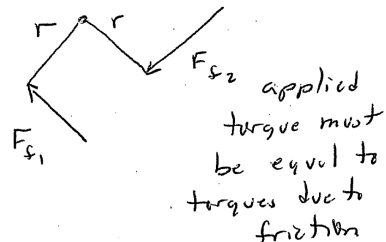 r
r
F_f2
F_f1
applied
torque must
be equal to
torques due to
friction